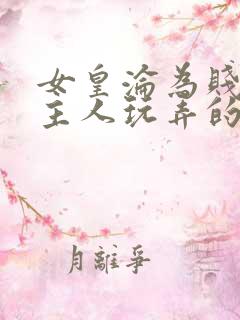 女皇淪為賤
主人玩弄的
月離爭